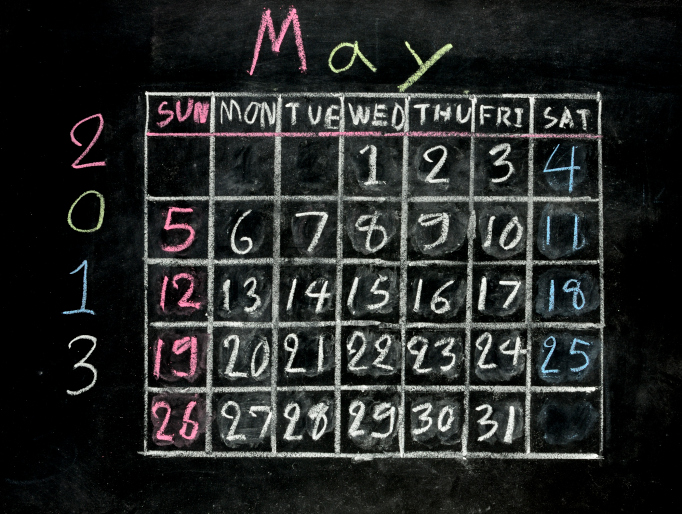 May
2
0
1
3
SUN MON TUE WED THU FRI SAT
1 2 3 4
5 6 7 8 9 10 11
12 13 14 15 16 17 18
19 20 21 22 23 24 25
26 27 28 29 30 31